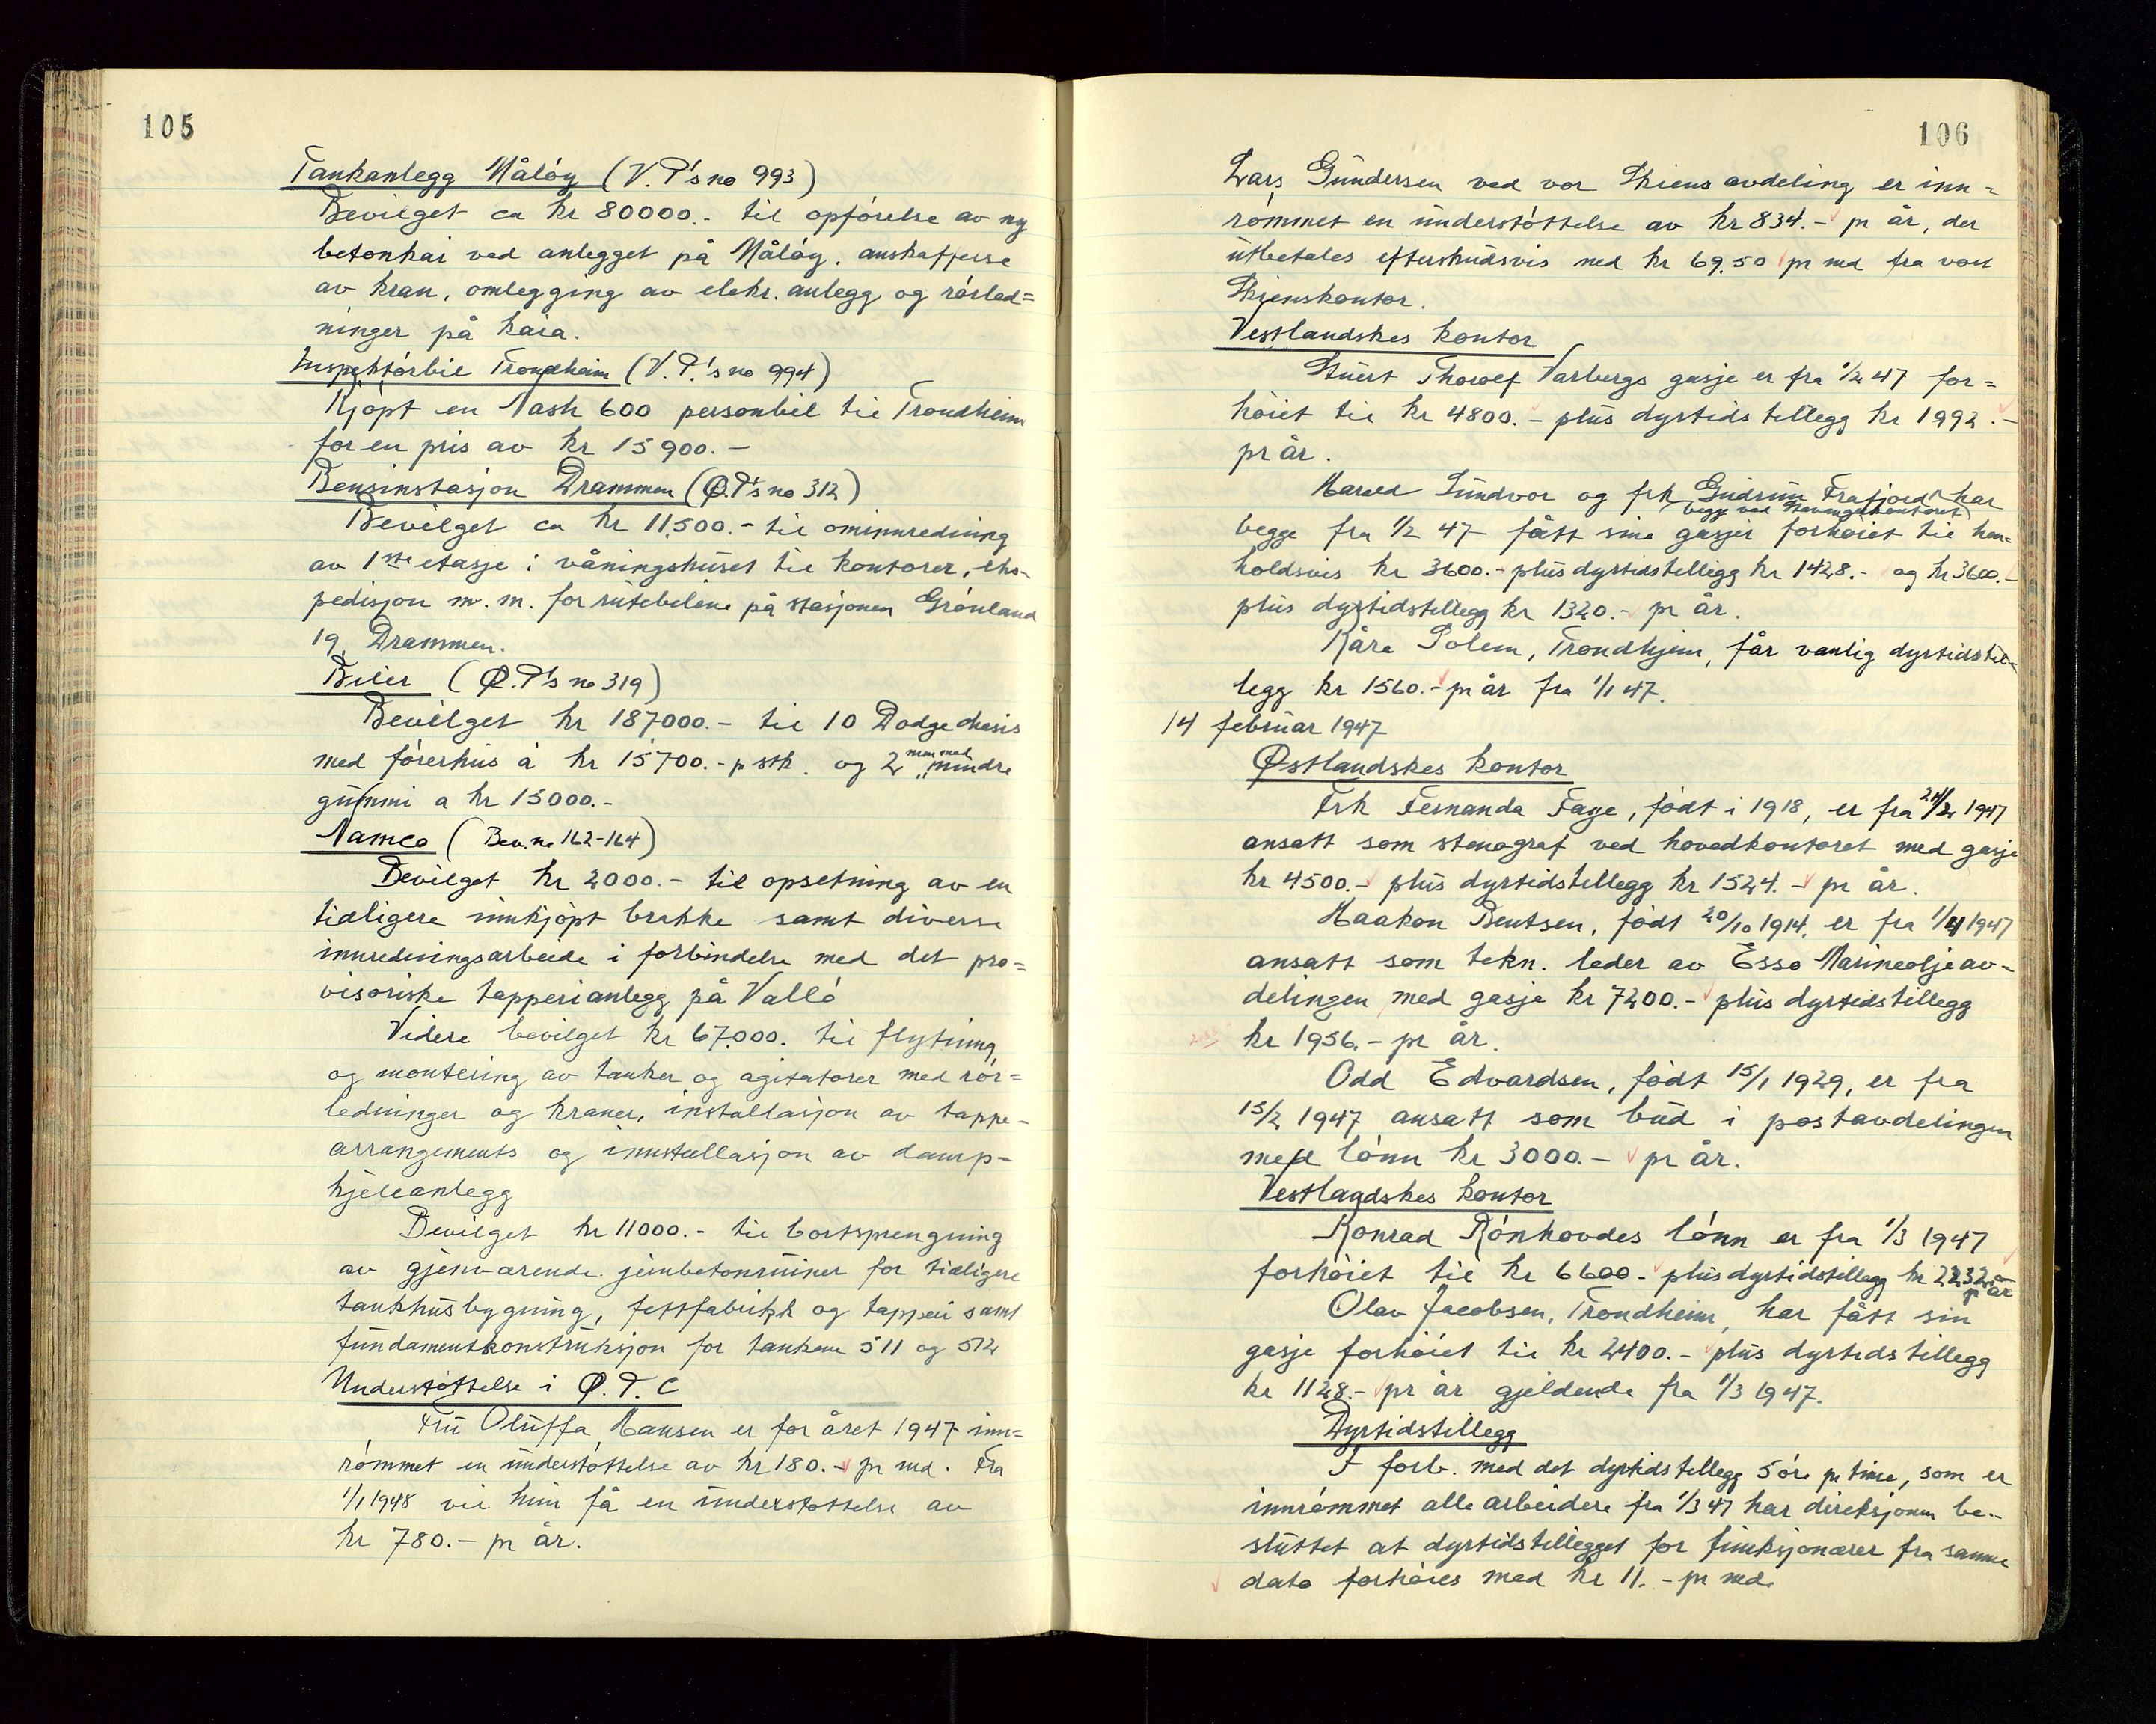 105
Tankanlegg Måløy (V.P's no 993)
Bevilget ca kr 80000.- til opførelse av ny
betonkai ved anlegget på Måløy, anskaffelse
av kran, omlegging av elekr. anlegg og rørled=
ninger på kaia.
Inspektørbil Trondheim (V.P.'s no 994)
Kjøpt en Nash 600 personbil til Trondheim
for en pris av kr 15900.-
Bensinstasjon Drammen (Ø.P's no 312)
Bevilget ca kr 11.500.- til ominnredning
av 1ste etasje i våningshuset til kontorer, eks-
pedisjon m.m. for rutebilene på stasjonen Grønland
19, Drammen.
Biler (Ø.P's no 319)
Bevilget kr 187000.- til 10 Dodge chasis
med førerhus à kr 15700.- p stk. og 2 men med mindre
gummi a kr 15000.-
Namco (Bev. no 162-164)
Bevilget kr 2000.- til opsetning av en
tidligere innkjøpt brakke samt diverse
innredningsarbeide i forbindelse med det pro=
visoriske tapperianlegg på Vallø
Videre bevilget kr 67.000. til flytning
og montering av tanker og agitatorer med rør=
ledninger og kraner, installasjon av tappe-
arrangements og innstallasjon av damp-
kjeleanlegg
Bevilget kr 11000.- til bortsprengning
av gjenværende jernbetonruiner for tidligere
tankhusbygning, fettfabrikk og tapperi samt
fundamentkonstruksjon for tankene 511 og 512
Understøttelse i Ø.P.C
Fru Oluffa Hansen er for året 1947 inn=
rømmet en understøttelse av kr 180.- pr md. Fra
1/1 1948 vil hun få en understøttelse av
kr 780.- pr år.
106
Lars Gundersen ved vor Skiens avdeling er inn=
rømmet en understøttelse av kr 834.- pr år, der
utbetales efterskudsvis med kr 69.50 pr md fra vort
Skienskontor.
Vestlandskes kontor
Stuert Thorolf Varbergs gasje er fra 1/2 47 for=
høiet til kr 4800.- plus dyrtidstillegg kr 1992.-
pr år.
Harald Sundvor og frk Gudrun Frafjord har
(begge ved Stavangerkontoret)
begge fra 1/2 47 fått sine gasjer forhøiet til hen=
holdsvis kr 3600.- plus dyrtidstillegg kr 1428.- og kr 3600.-
plus dyrtidstillegg kr 1320.- pr år.
Kåre Solem, Trondhjem, får vanlig dyrtidstil-
legg kr 1560.- pr år fra 1/1 47.
14 februar 1947
Østlandskes kontor
Frk Fernanda Faye, født i 1918, er fra 24/2 1947
ansatt som stenograf ved hovedkontoret med gasje
kr 4500.- plus dyrtidstillegg kr 1524.- pr år.
Haakon Bentsen, født 20/10 1914, er fra 1/4 1947
ansatt som tekn. leder av Esso Marineoljeav-
delingen med gasje kr 7200.- plus dyrtidstillegg
kr 1956.- pr år.
Odd Edvardsen, født 15/1 1929, er fra
15/2 1947 ansatt som bud i postavdelingen
med lønn kr 3000.- pr år.
Vestlandskes kontor
Konrad Rønhovdes lønn er fra 1/3 1947
forhøiet til kr 6600.- plus dyrtidstillegg kr 2232.- pr år
Olav Jacobsen, Trondheim, har fått sin
gasje forhøiet til kr 2400.- plus dyrtidstillegg
kr 1128.- pr år gjeldende fra 1/3 1947.
Dyrtidstillegg
I forb. med det dyrtidstillegg 5 øre pr time, som er
innrømmet alle arbeidere fra 1/3 47 har direksjonen be-
sluttet at dyrtidstillegget for funksjonærer fra samme
dato forhøies med kr 11.- pr md.